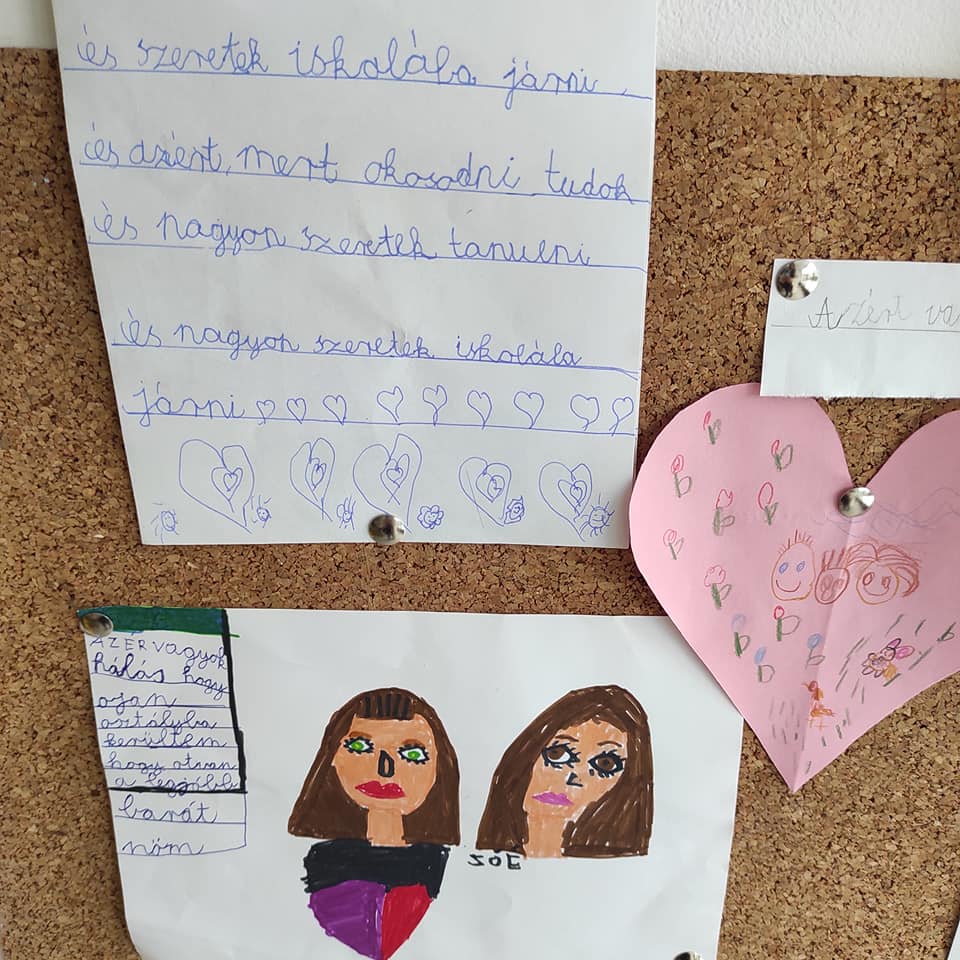 és szeretek iskolába járni.
és azért, mert okosodni tudok
és nagyon szeretek tanulni
és nagyon szeretek iskolála
járni
Azért va
AZÉRVagyok
hálás hogy
ojan
osztályba
kerültem
hogy otvan
a legjobb
barát
nőm
ZOE